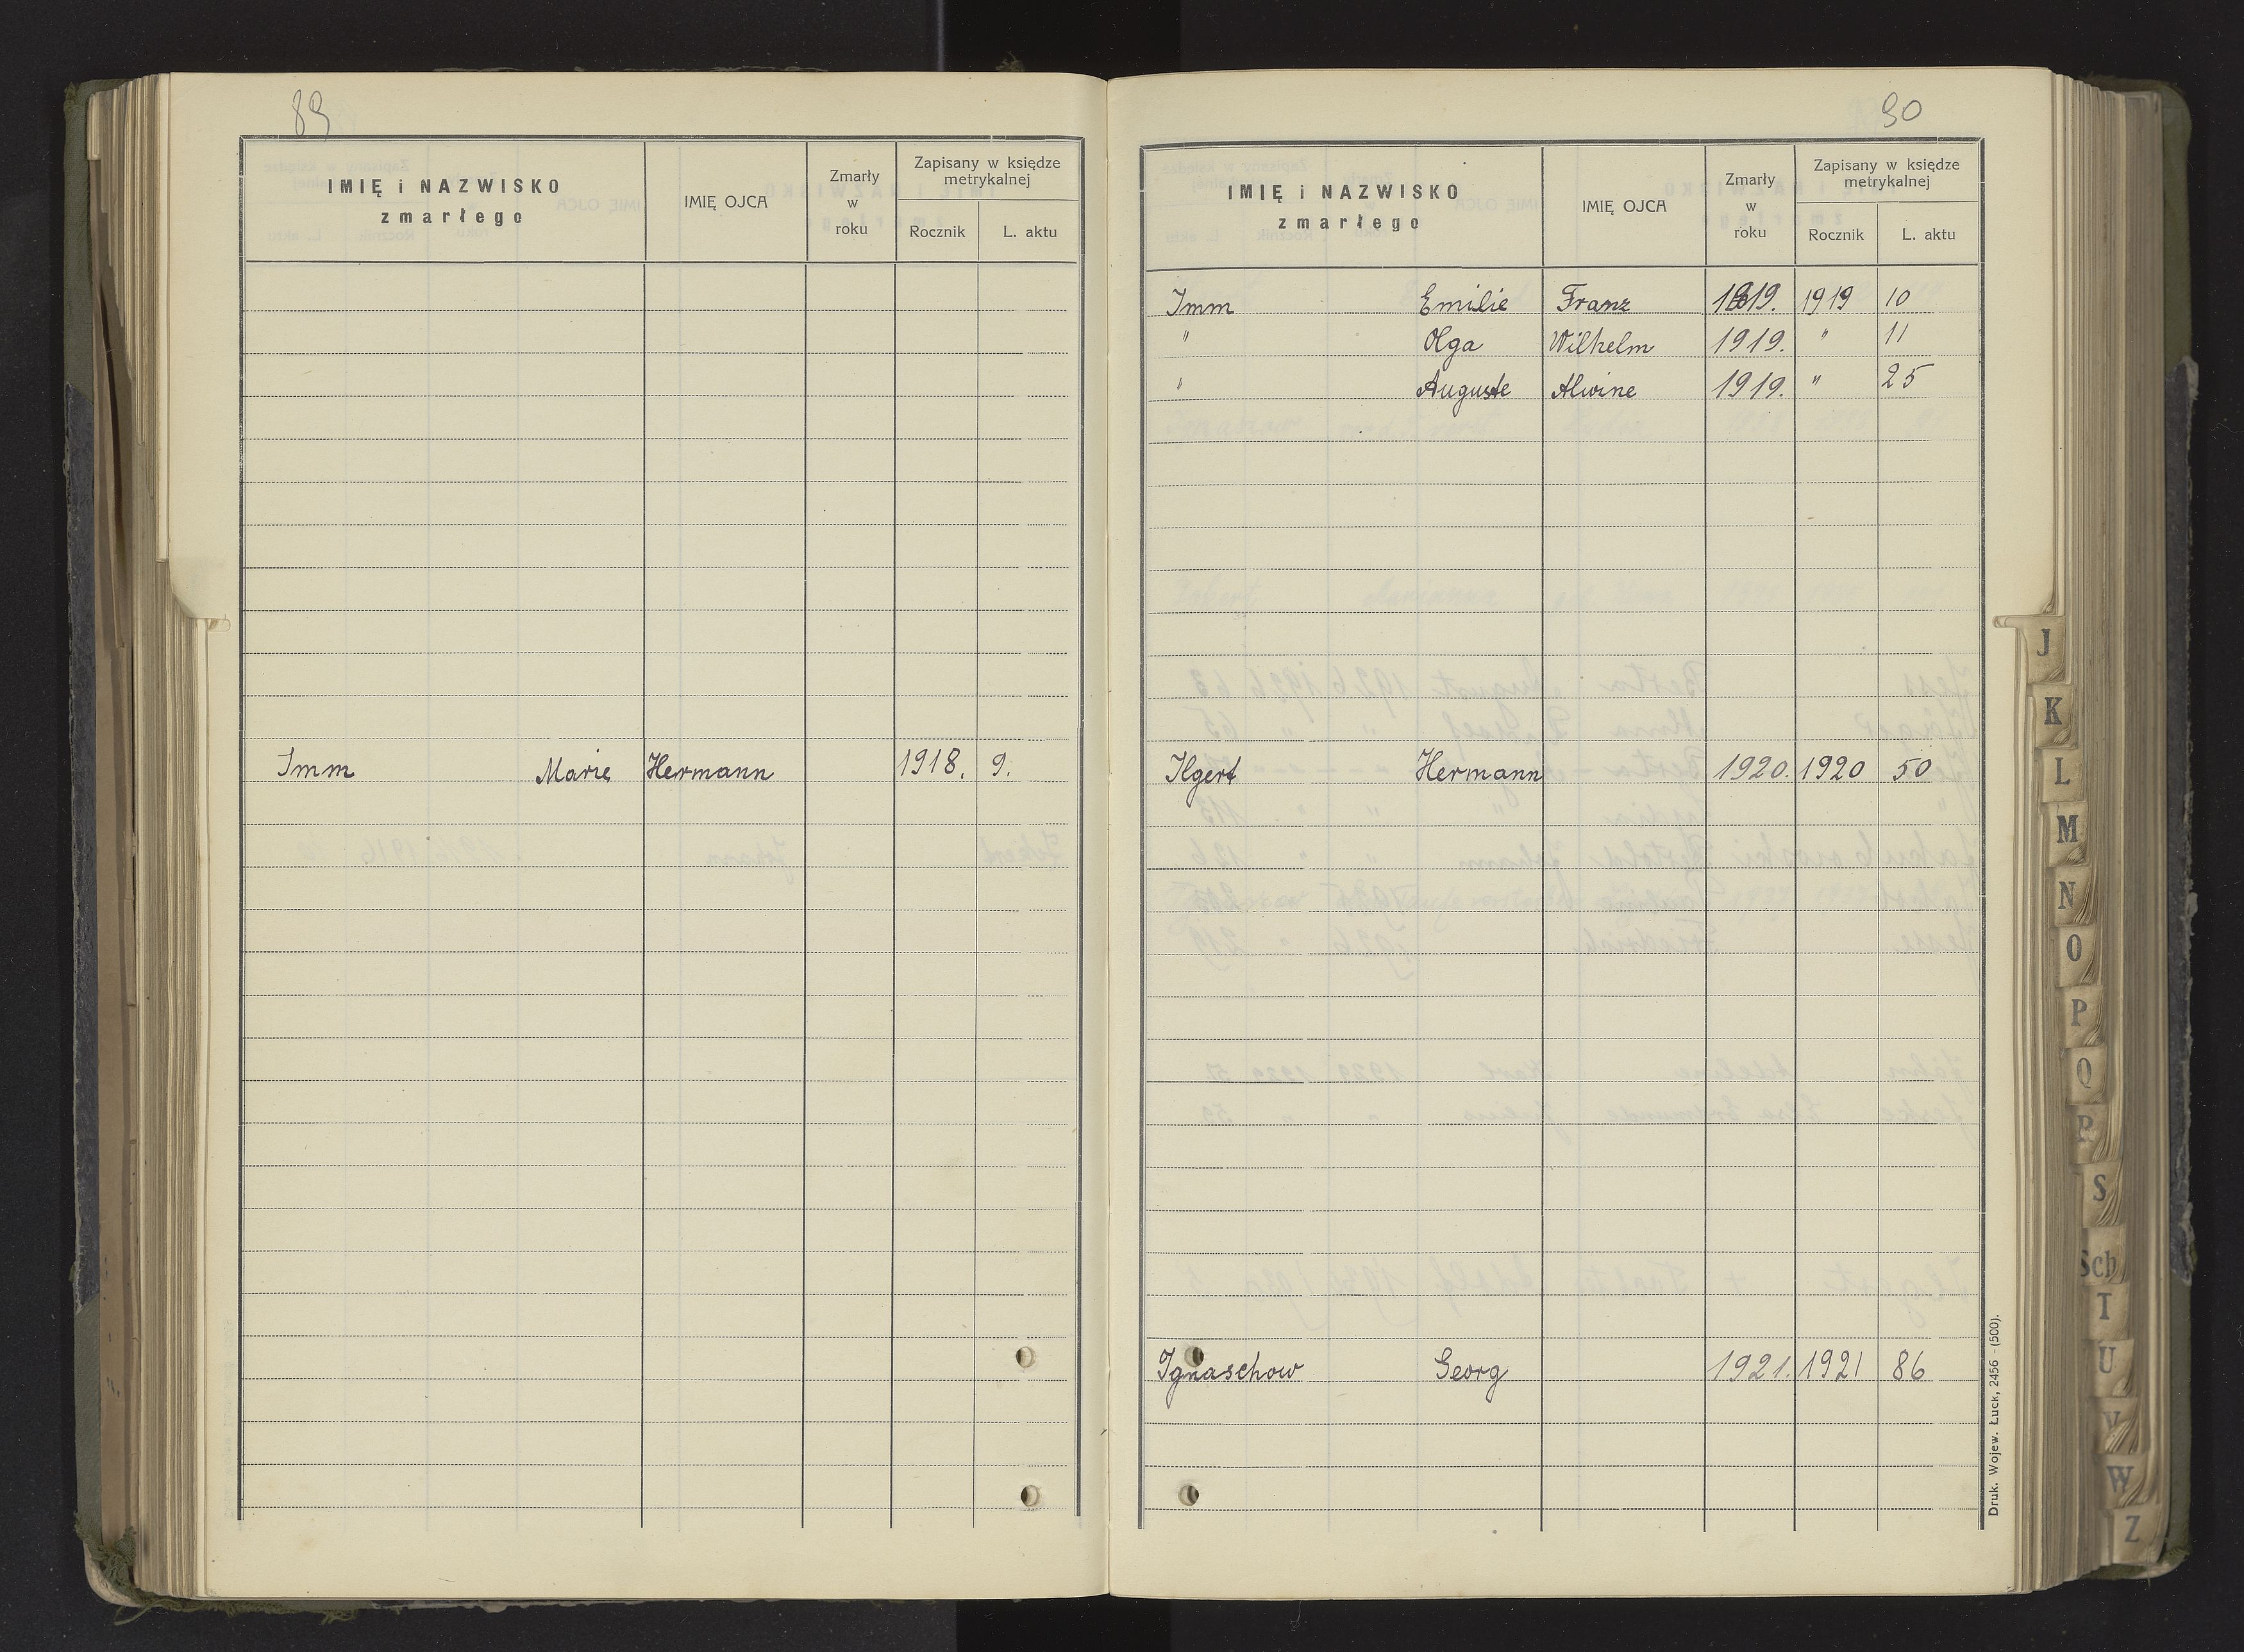 89
IMIĘ i NAZWISKO
zmarłego
IMIĘ OJCA
Zmarły
w
roku
Zapisany w księdze
metrykalnej
Rocznik
L. aktu
Imm Marie Hermann 1918. 9.
90
IMIĘ i NAZWISKO
zmarłego
IMIĘ OJCA
Zmarły
w
roku
Zapisany w księdze
metrykalnej
Rocznik
L. aktu
Imm Emilie Franz 1919. 1919 10
" Olga Wilhelm 1919. " 11
" Auguste Alwine 1919. " 25
Ilgert Hermann 1920. 1920 50
Ignaschow Georg 1921. 1921 86
Druk. Wojew. Łuck, 2456 - (500).
J
K
L
M
N
O
P
Q
R
S
Sch
T
U
V
W
Z